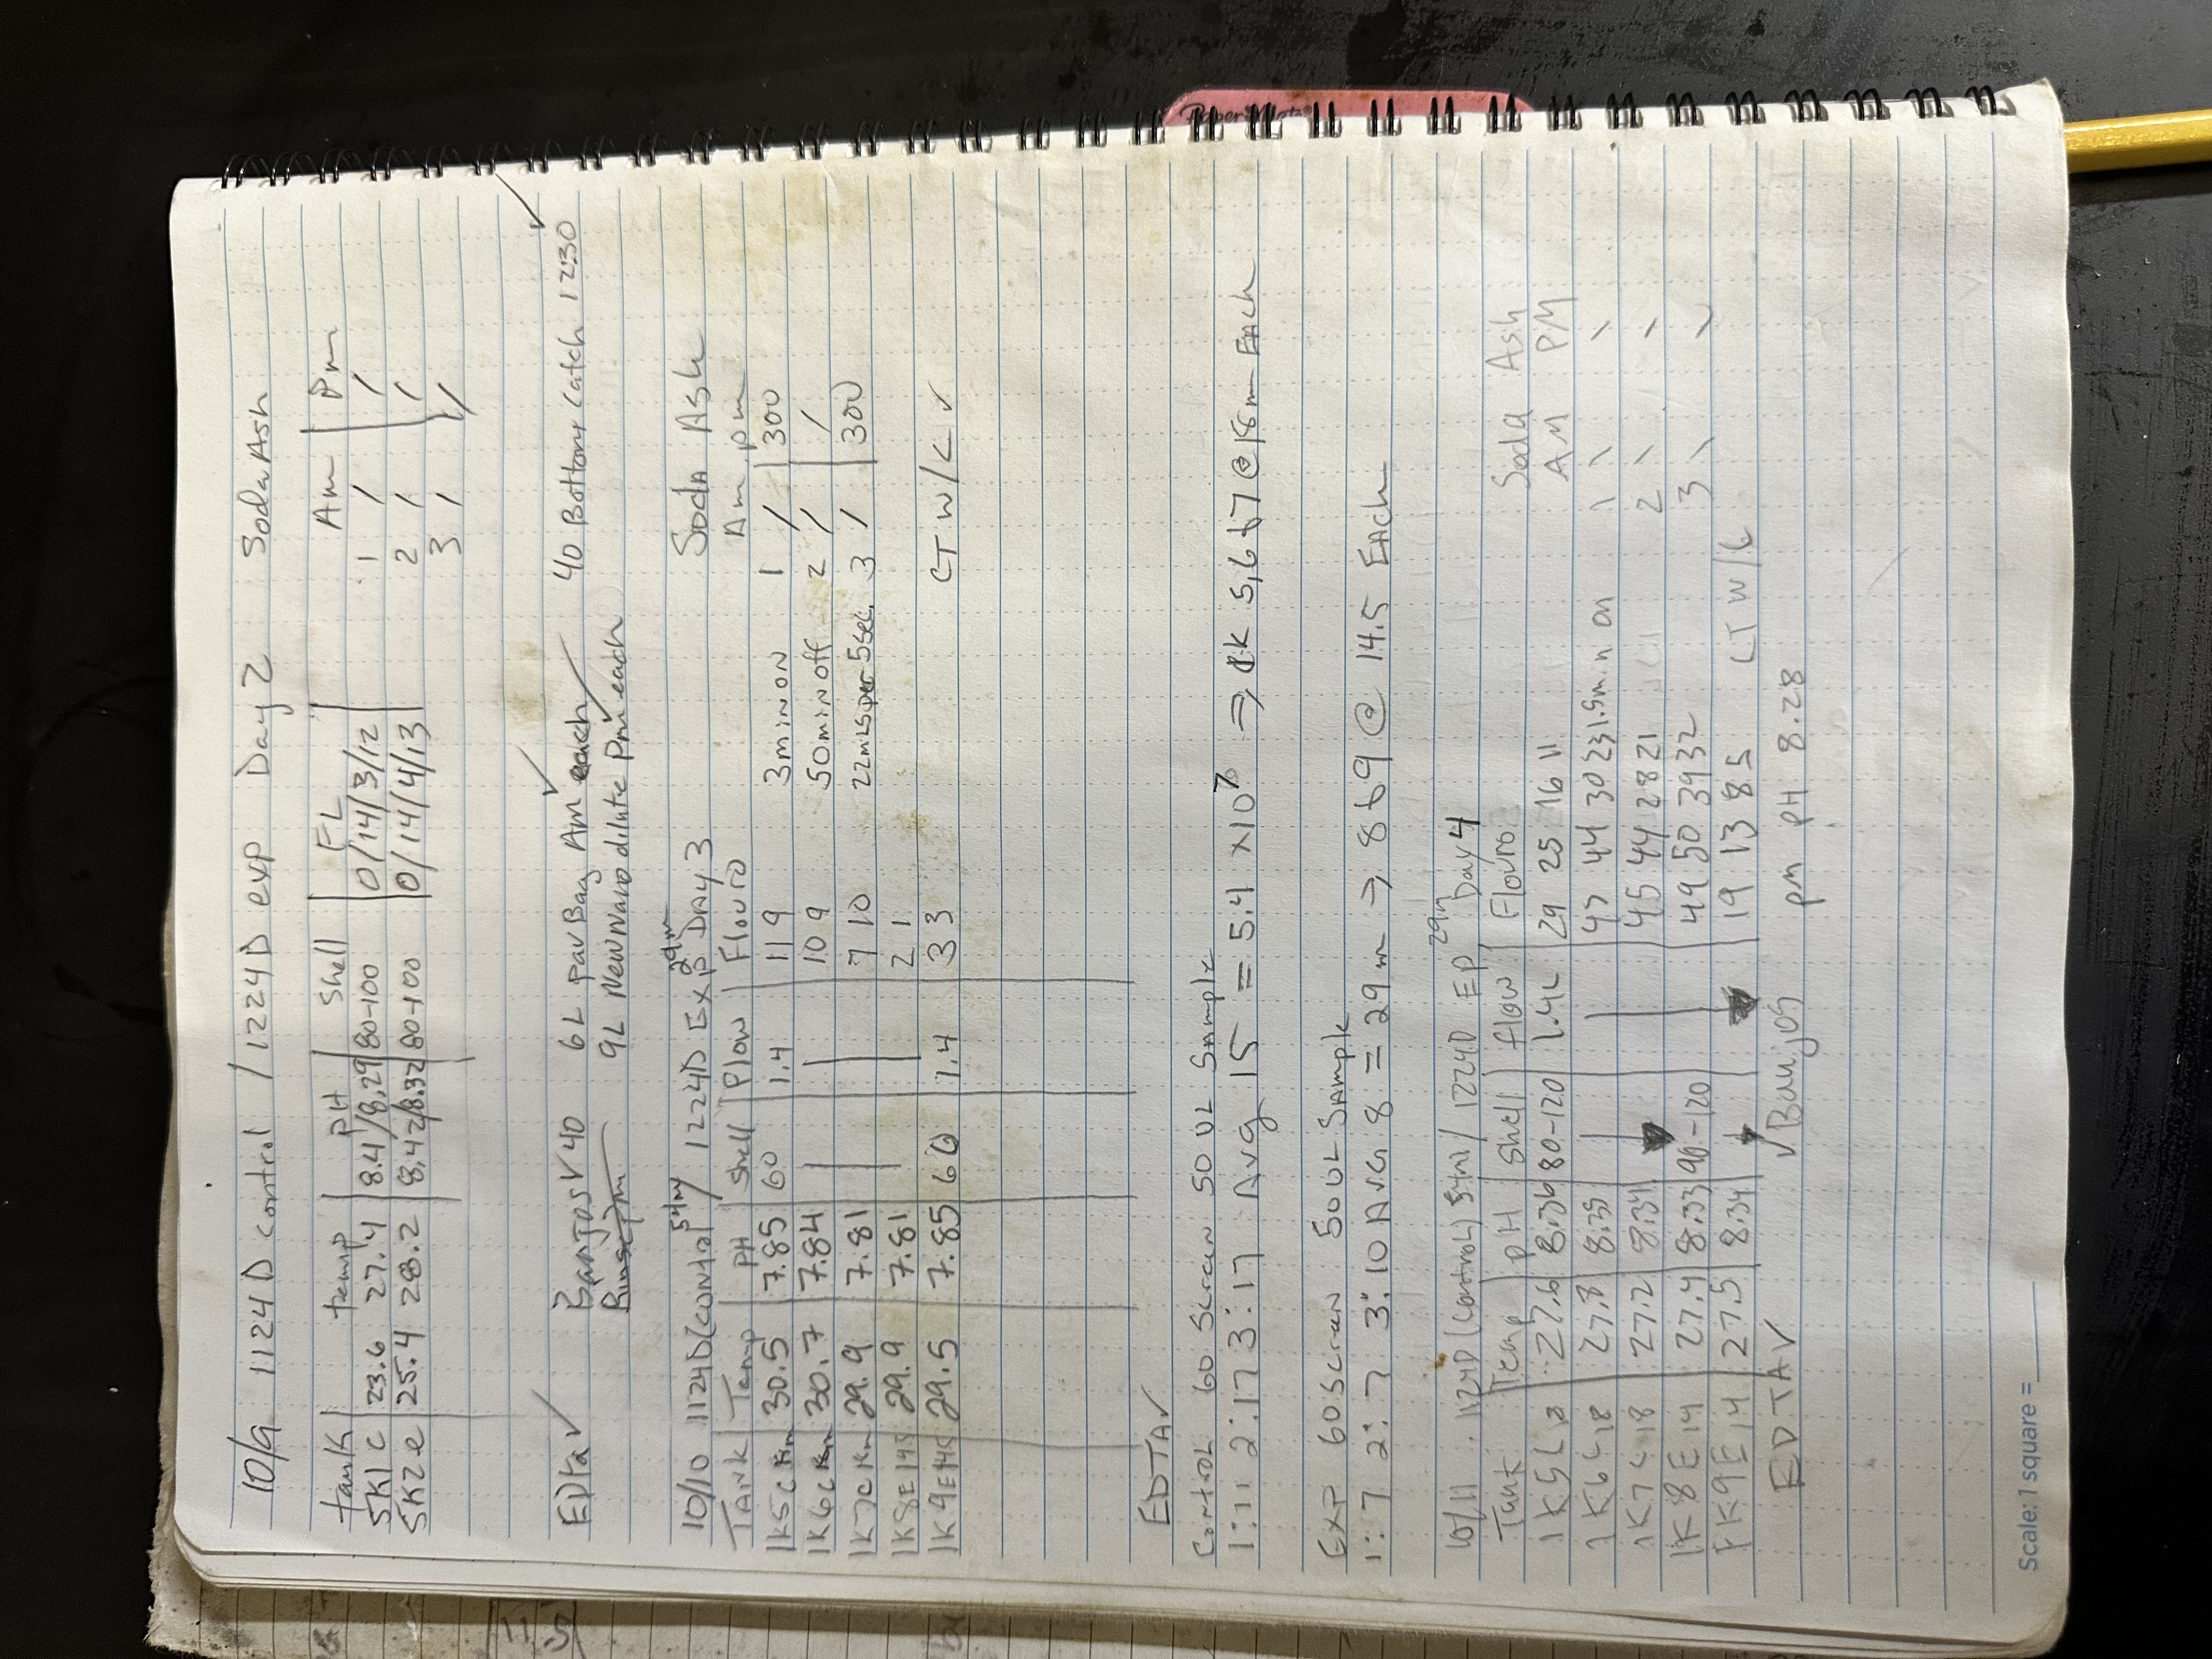 10/9 1124D control / 1224D exp Day 2 Soda Ash
tank temp pH Shell FL Am Pm
5K1 C 23.6 27.4 8.4/8.29 80-100 0/14/3/12 1 / /
5K2 e 25.4 28.2 8.42/8.32 80-100 0/14/4/13 2 / /
3 / /
EDta ✓ Banjos ✓ 40 6L pav Bag AM each ✓ 40 Bottom Catch 12:30 ✓
9L New Nano dilute Pm each
10/10 1124D (control 54m / 1224D Exp 29m DAY 3 SODA ASh
TANK Temp pH Shell Flow Flouro Am pm
1K5C 30.5 7.85 60 1.4 11 9 3 min ON 1 / 300
1K6C 30.7 7.84 10 9 50 min off 2 / /
1K7C 29.9 7.81 7 10 22mLs per 5 sec. 3 / 300
1K8E 145 29.9 7.81 2 1
1K9E 145 29.5 7.85 60 1.4 3 3 CT W/C ✓
EDTA ✓
Control 60 Screen 50 UL SAmple
1:11 2:17 3:17 Avg 15 = 5.4 x10⁷ => 1K 5,6 & 7 @ 18m EAch
Exp 60 Screen 50 UL SAmple
1: 7 2: 7 3: 10 AVG 8 = 29m → 8 & 9 @ 14.5 EAch
10/11 1124D (Control) 54m / 1224D EP 29m Day 4
Tank Temp pH Shell flow Flouro Soda Ash
1K5C 27.6 8.36 80-120 1.4L 29 25 16 11 AM PM
1K6C 18 27.8 8.35 47 44 30 23 1.5 min on 1 \ \
1K7C 18 27.2 8.34 45 44 28 21 2 \ \
1K8E 14 27.4 8.33 90-120 49 50 39 32 3 \ \
1K9E 14 27.5 8.34 19 13 8 5 CT W/C
EDTA ✓ ✓ Banjos pm pH 8.28
Scale: 1 square =